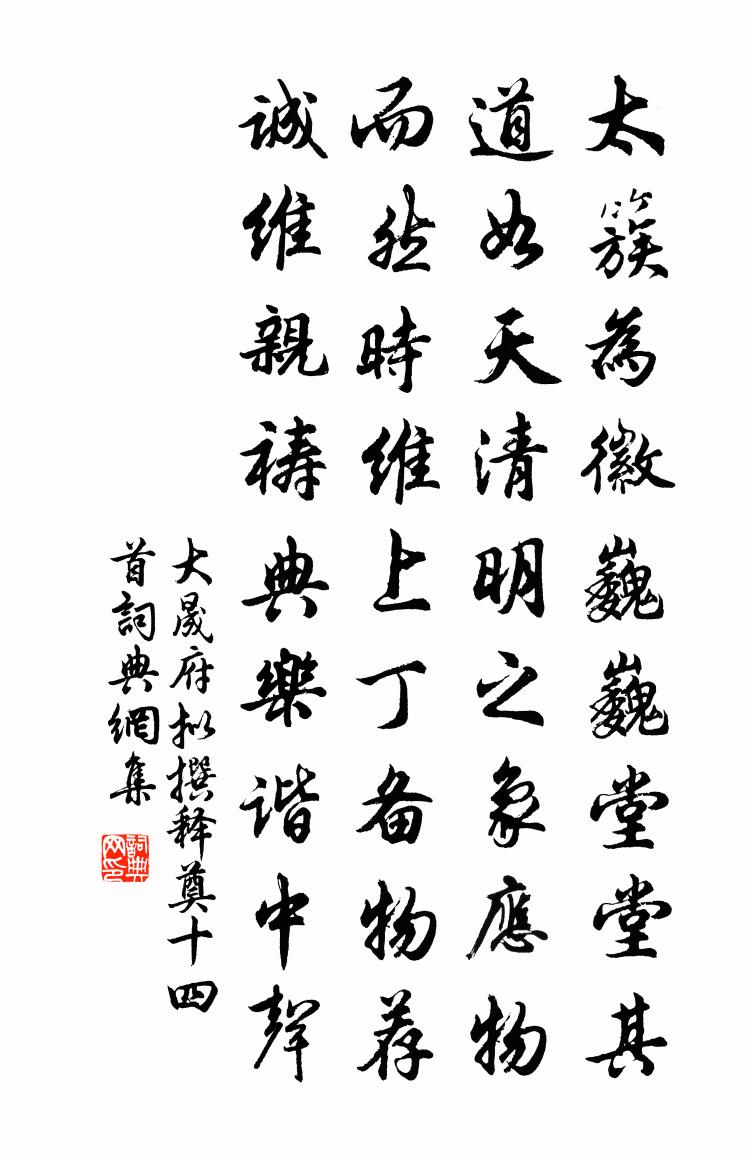 太簇為徽巍巍堂堂其
道如天清明之象應物
而然時維上丁备物荐
诚維親祷典樂谐中聲
大晟府拟撰释奠十四
首詞典網集
詞典网印